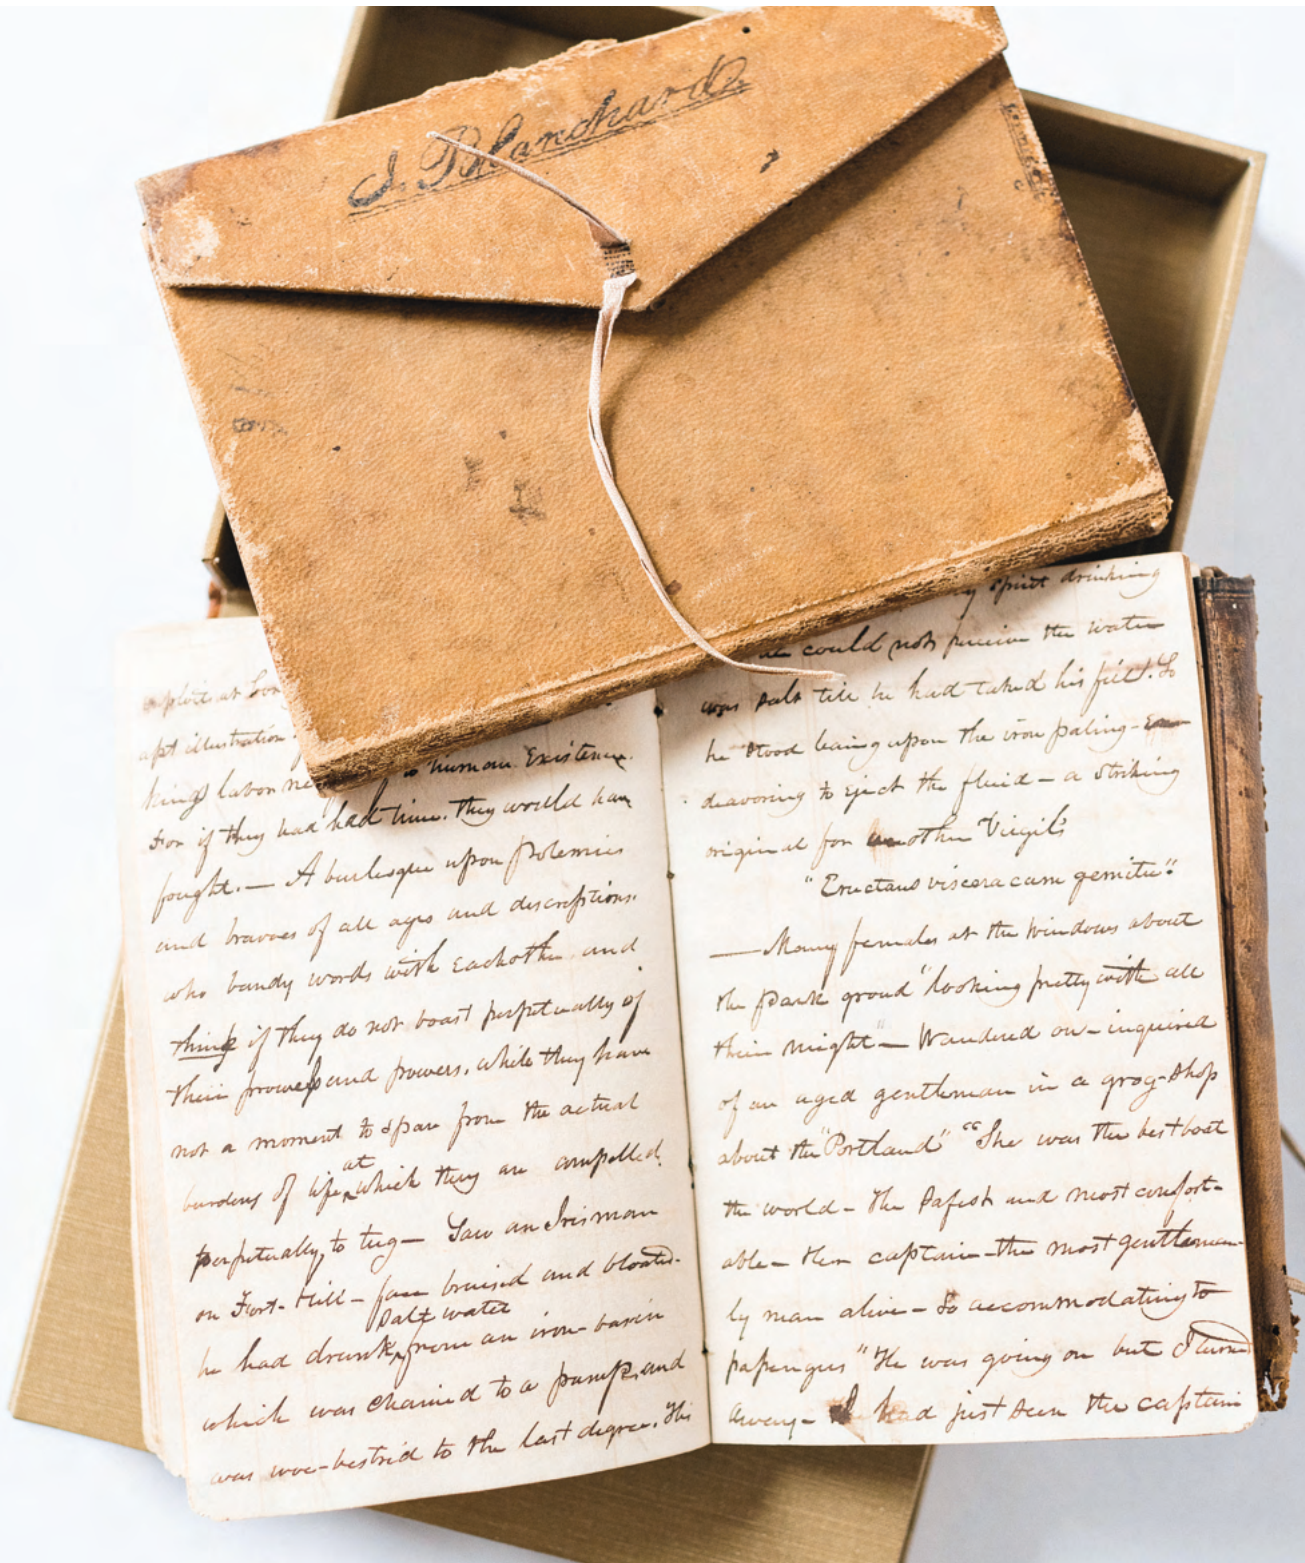 J. Blanchard.
apt illustration
kings labor
to human Existence.
For if they had had time. they would have
fought. — A burlesque upon Polemics
and bravoes of all ages and descriptions.
who bandy words with Eachother and
things if they do not boast perpetually of
their prowess and powers. while they have
not a moment to spare from the actual
burdens of life, at which they are compelled
perpetually, to tug — Saw an Irisman
on Fort-Hill — face bruised and bloated.
he had drank, salt water from an iron basin
which was chained to a pump, and
was woe-bestrid to the last degree. His
spirit drinking
he could not perceive the water
was salt till he had taked his fill. So
he stood leaing upon the iron paling - en
deavoring to eject the fluid — a striking
original for another Virgil's
"Eructans viscera cum gemitu"
— Many females at the windows about
the park groud "looking pretty with all
their might" — Wandered on — inquired
of an aged gentleman in a grog-shop
about the "Portland" "She was the best boat
the world — the safest and most comfort-
able — her captain — the most gentleman-
ly man alive — so accommodating to
passengers" He was going on but I turned
away — I had just seen the captain